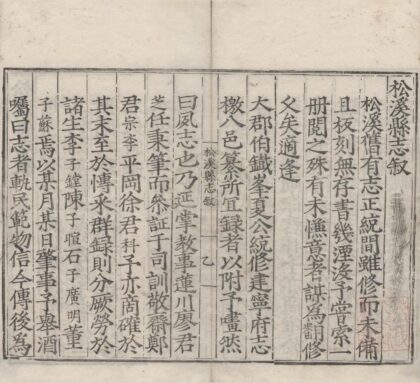 松溪縣志叙
松溪舊有志正統間雖修而未備
且板刻無存書幾湮沒予嘗索一
册閱之殊有未愜意者謀爲翻修
久矣適逢
大郡伯鐵峯夏公統修建寧府志
檄八邑纂所宜録者以附予晝然
曰夙志也乃延掌教事蓮川廖君
芝任秉筆而叅証于司訓敬齋鄭
君宗李平岡徐君科予亦商確於
其末至於傳采群録則分厥勞於
諸生李子鏜陳子愷石子廣明董
子蘇焉以某月某日肇事予舉酒
囑曰志者軌民範物信今傳後爲
松溪縣志叙
乙